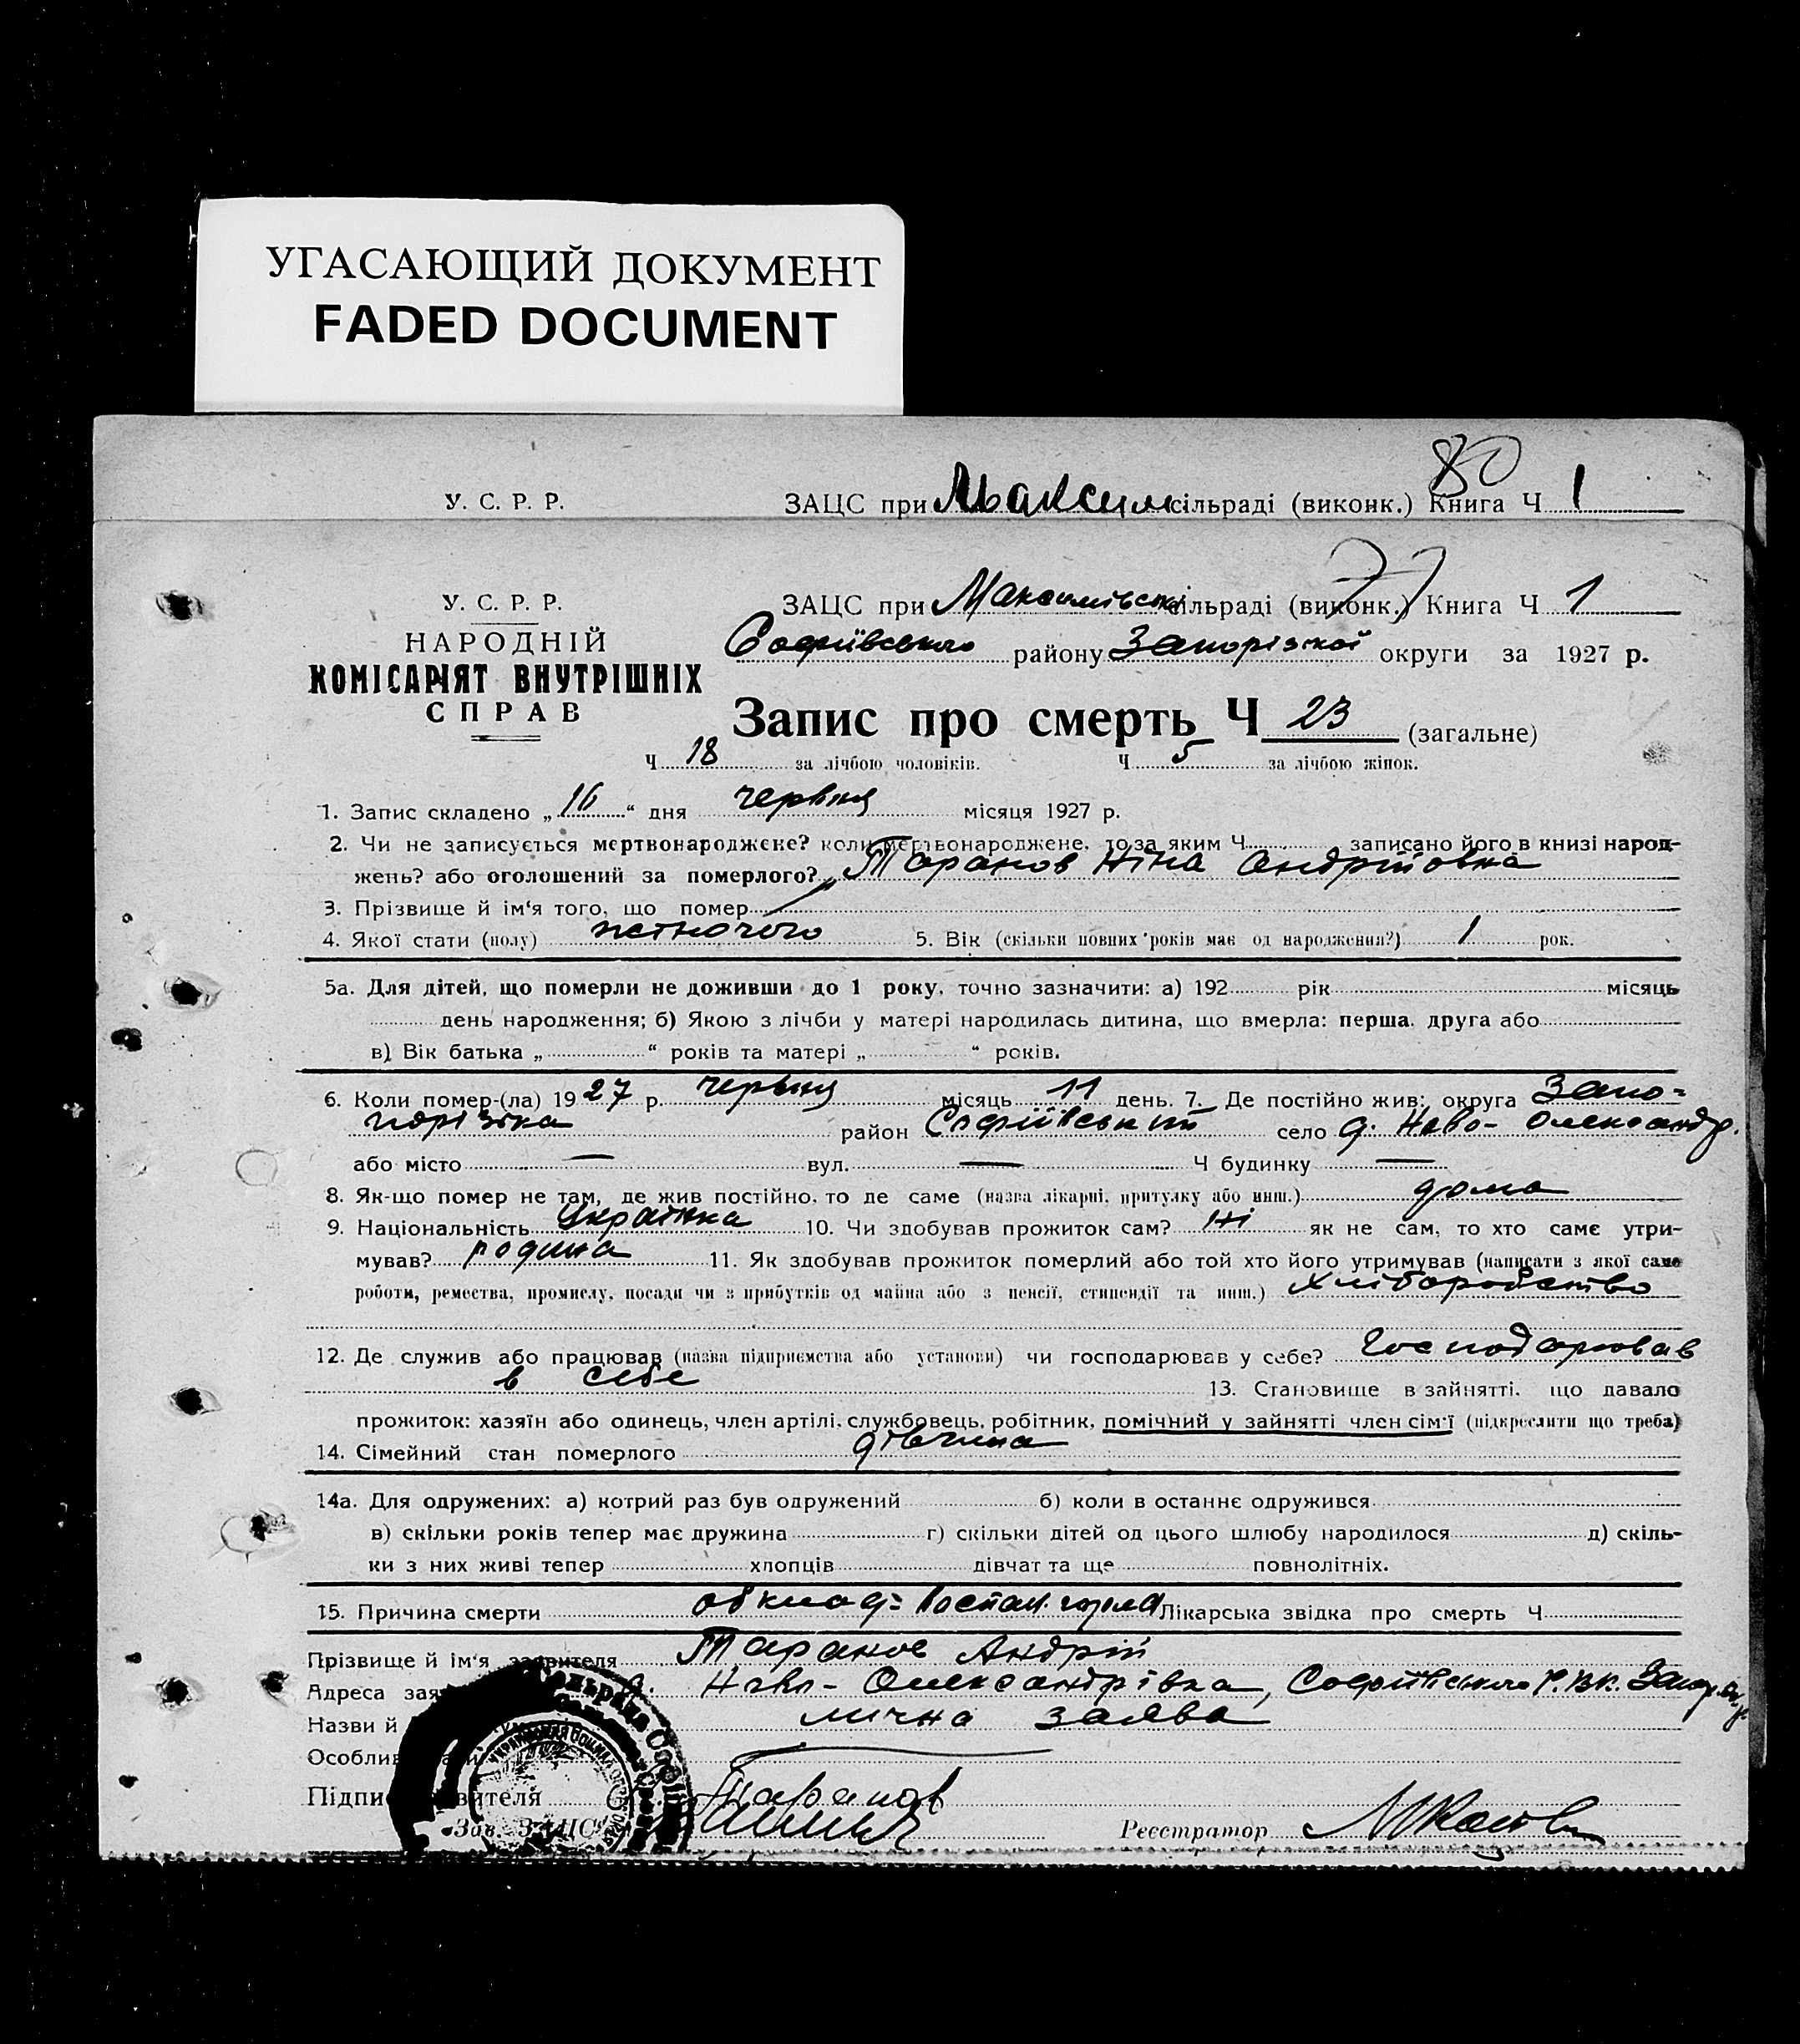 УГАСАЮЩИЙ ДОКУМЕНТ
FADED DOCUMENT
80
У. С. Р. Р. ЗАЦС при Максим сільраді (виконк.) Книга Ч 1
77
У. С. Р. Р. ЗАЦС при Максимівській сільраді (виконк.) Книга Ч 1
НАРОДНІЙ Софиївського району Запорізкої округи за 1927 р.
КОМІСАРІЯТ ВНУТРІШНІХ
СПРАВ
Запис про смерть Ч 23 (загальне)
Ч 18 за лічбою чоловіків. Ч 5 за лічбою жінок.
1. Запис складено „ 16 “ дня червня місяця 1927 р.
2. Чи не записується мертвонароджене? коли мертвонароджене, то за яким Ч записано його в книзі народ-
жень? або оголошений за померлого? Таранов Ніна Андрійовна
3. Прізвище й ім'я того, що помер
4. Якої стати (полу) жіночого 5. Вік (скільки повних років має од народження?) 1 рок.
5а. Для дітей, що померли не доживши до 1 року, точно зазначити: а) 192 рік місяць
день народження; б) Якою з лічби у матері народилась дитина, що вмерла: перша, друга або
в) Вік батька „ “ років та матері „ “ років.
6. Коли помер-(ла) 1927 р. червня місяць 11 день. 7. Де постійно жив: округа Запо-
район Софіївський село д. Ново-Олександр.
або місто — вул. — Ч будинку —
8. Як-що помер не там, де жив постійно, то де саме (назва лікарні, притулку або инш.) дома
9. Національність Українка 10. Чи здобував прожиток сам? Ні як не сам, то хто саме утри-
мував? родина 11. Як здобував прожиток померлий або той хто його утримував (написати з якої саме
роботи, ремества, промислу, посади чи з прибутків од майна або з пенсії, стипендії та инш.) хліборобство
12. Де служив або працював (назва підприємства або установи) чи господарював у себе? Господарював
в себе 13. Становище в зайнятті, що давало
прожиток: хазяїн або одинець, член артілі, службовець, робітник, помічний у зайнятті член сім'ї (підкреслити що треба)
14. Сімейний стан померлого дівчина
14а. Для одружених: а) котрий раз був одружений б) коли в останнє одружився
в) скільки років тепер має дружина г) скільки дітей од цього шлюбу народилося д) скіль-
ки з них живі тепер хлопців дівчат та ще повнолітніх.
15. Причина смерти горла Лікарська звідка про смерть Ч
Прізвище й ім'я заявителя Таранов Андрій
Адреса зая Ново-Олександрівка, Софіївського Р.В.К.
Назви й лична заява
Особлив
Підпи вителя Таранов
Зав. ЗАЦС Реєстратор